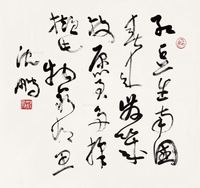 红豆生南國
春来發幾
枝愿君多採
擷此物最相思
沈鹏